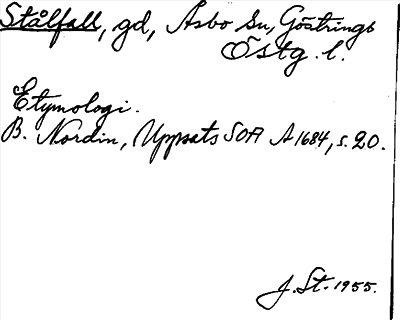 Stålfall, gd, Asbo sn, Göstrings
Östg. l.
Etymologi.
B. Nordin, Uppsats SOA A 1684, s. 20.
J. St. 1955.